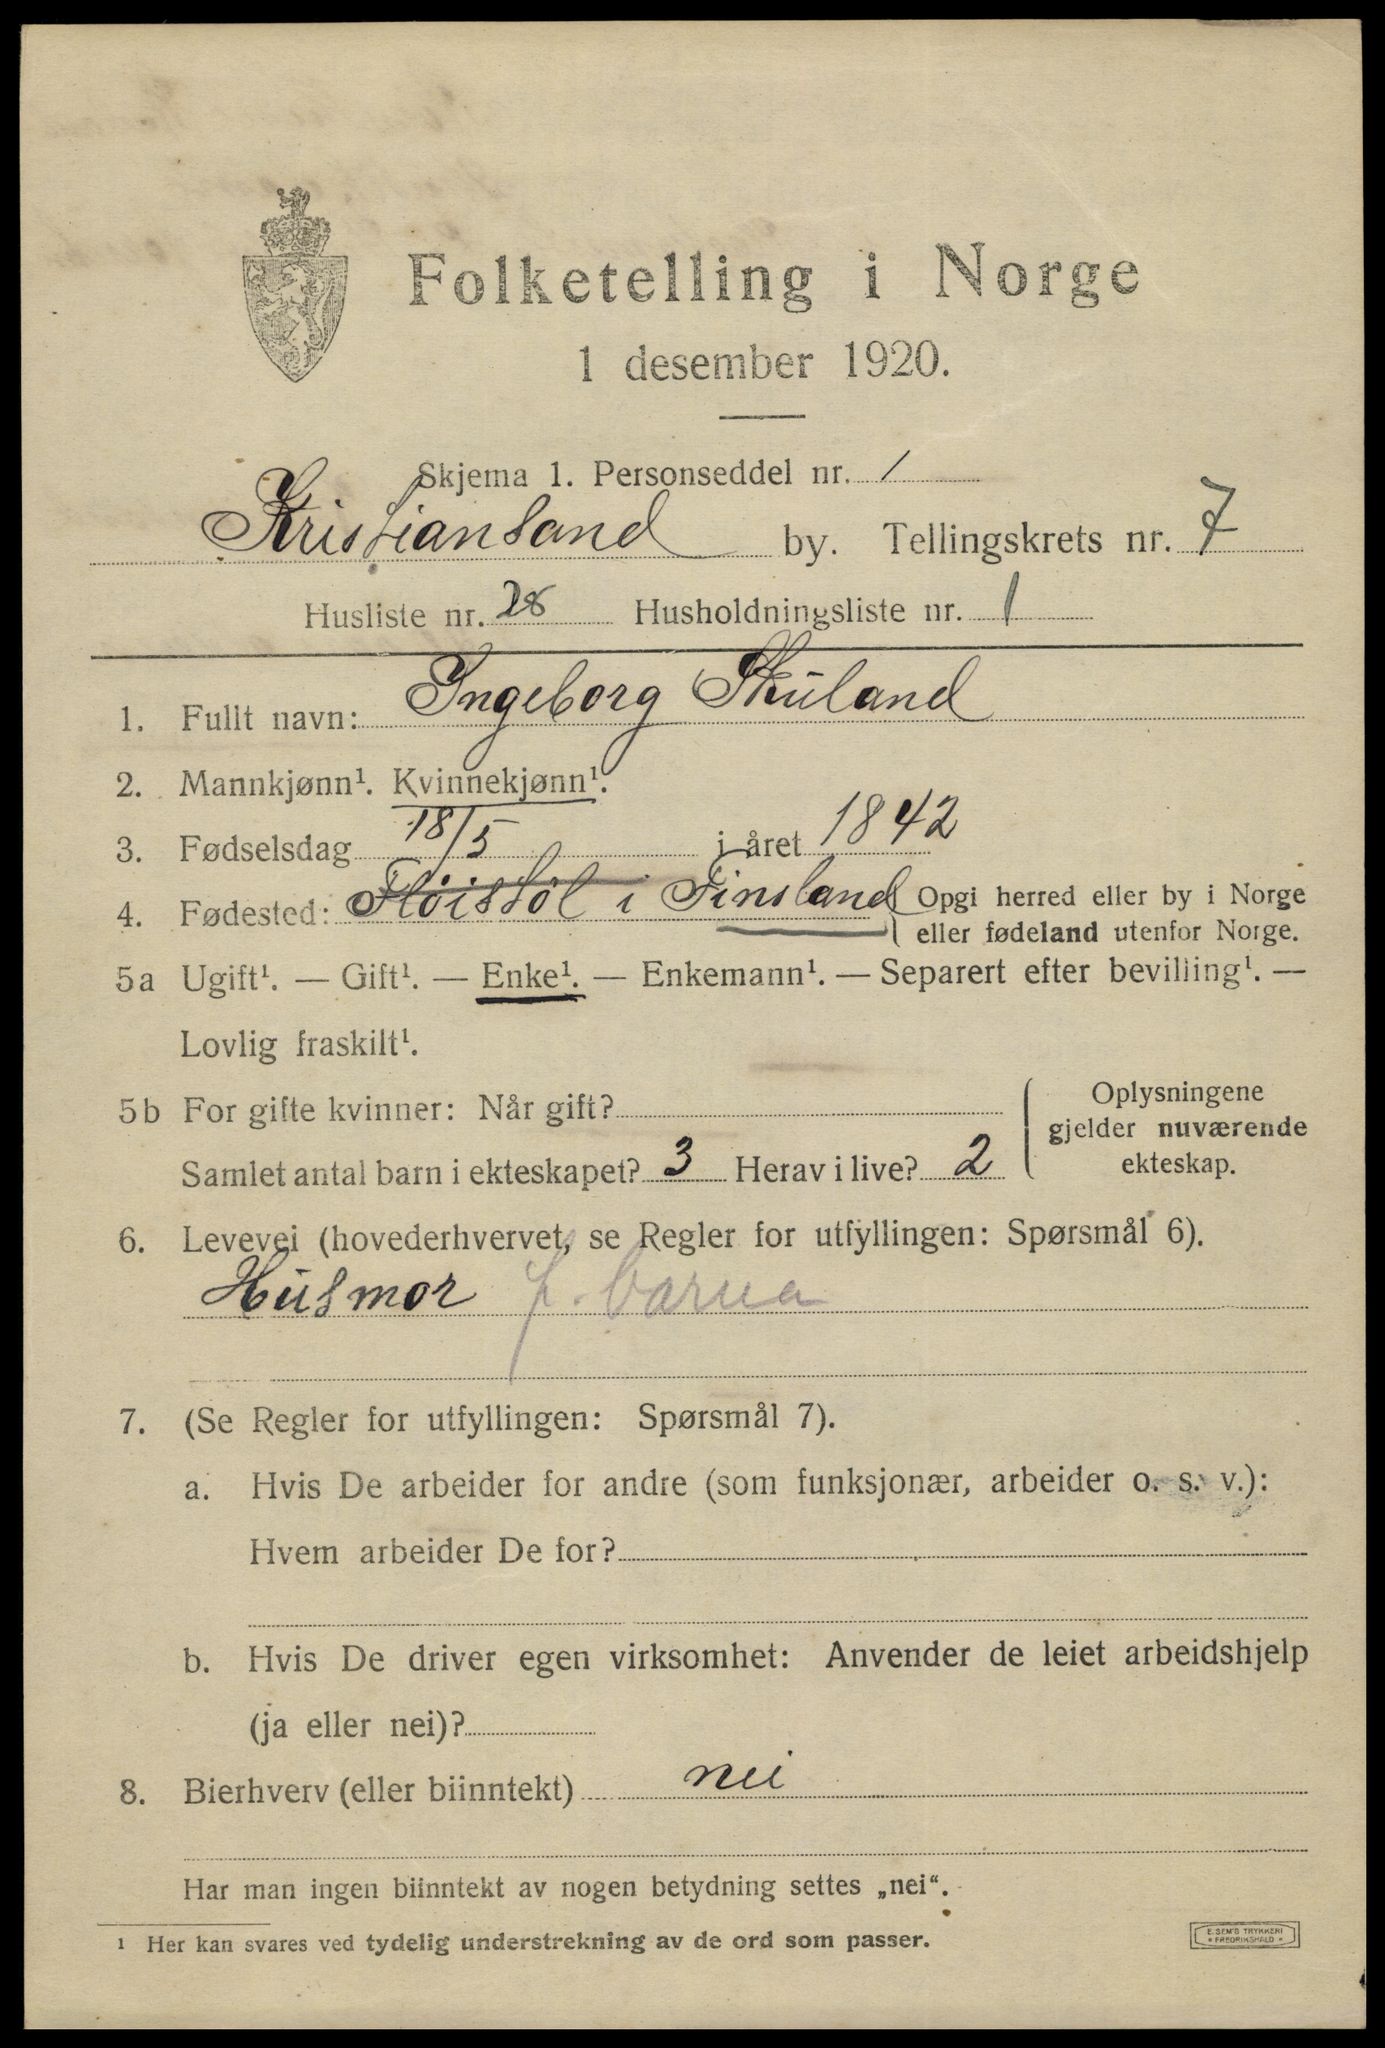 Folketelling i Norge
1 desember 1920.
Skjema 1. Personseddel nr. 1
Kristiansand by. Tellingskrets nr. 7
Husliste nr. 28 Husholdningsliste nr. 1
1. Fullt navn: Ingeborg Skuland
2. Mannkjønn¹. Kvinnekjønn¹.
3. Fødselsdag 18/5 i året 1842
4. Fødested: Fløistøl i Finsland { Opgi herred eller by i Norge
eller fødeland utenfor Norge.
5a Ugift¹. — Gift¹. — Enke¹. — Enkemann¹. — Separert efter bevilling¹. —
Lovlig fraskilt¹.
5b For gifte kvinner: Når gift?
Samlet antal barn i ekteskapet? 3 Herav i live? 2
Oplysningene
gjelder nuværende
ekteskap.
6. Levevei (hovederhvervet, se Regler for utfyllingen: Spørsmål 6).
Husmor f.
7. (Se Regler for utfyllingen: Spørsmål 7).
a. Hvis De arbeider for andre (som funksjonær, arbeider o. s. v.):
Hvem arbeider De for?
b. Hvis De driver egen virksomhet: Anvender de leiet arbeidshjelp
(ja eller nei)?
8. Bierhverv (eller biinntekt) nei
Har man ingen biinntekt av nogen betydning settes „nei“.
¹ Her kan svares ved tydelig understrekning av de ord som passer.
E. SEM'S TRYKKERI
FREDRIKSHALD